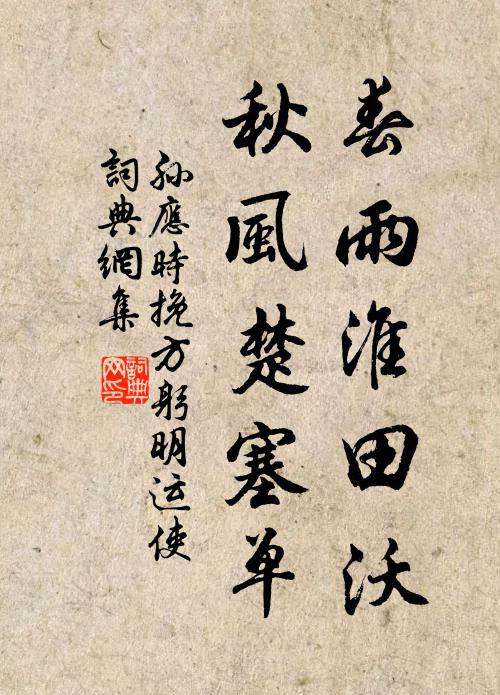 春雨淮田沃
秋風楚塞单
孫應時挽方躬明运使
詞典網集
詞典网印